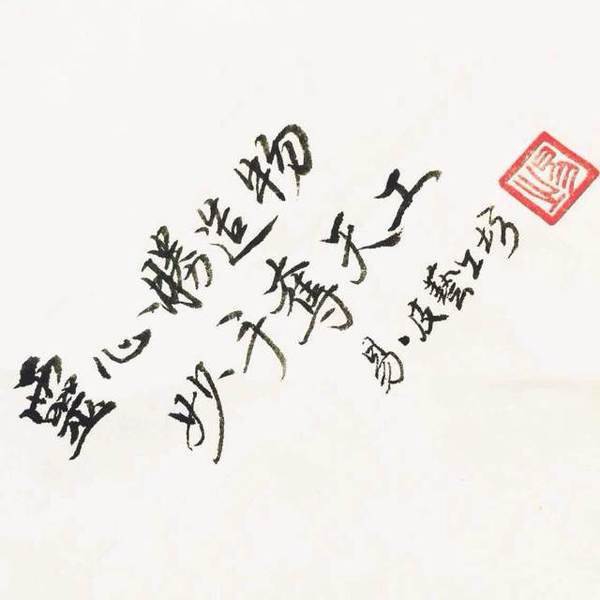 靈心勝造物
妙手奪天工
易·皮藝工坊